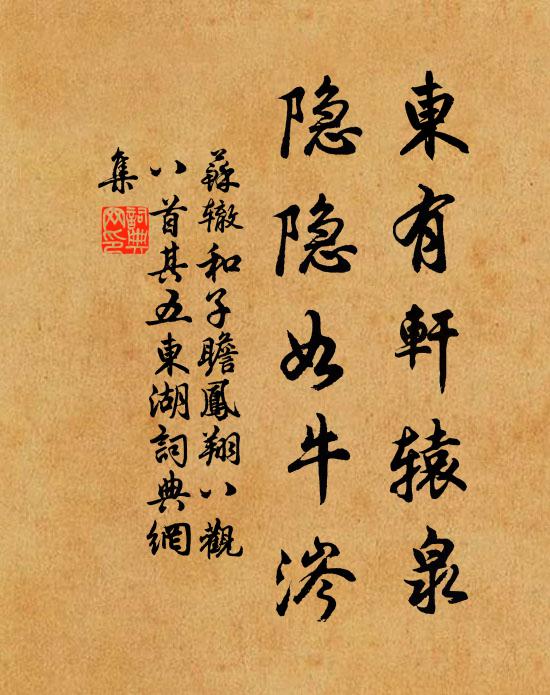 東有軒辕泉
隐隐如牛涔
蘇辙和子瞻鳳翔八觀
八首其五東湖詞典網
集
詞典
网印